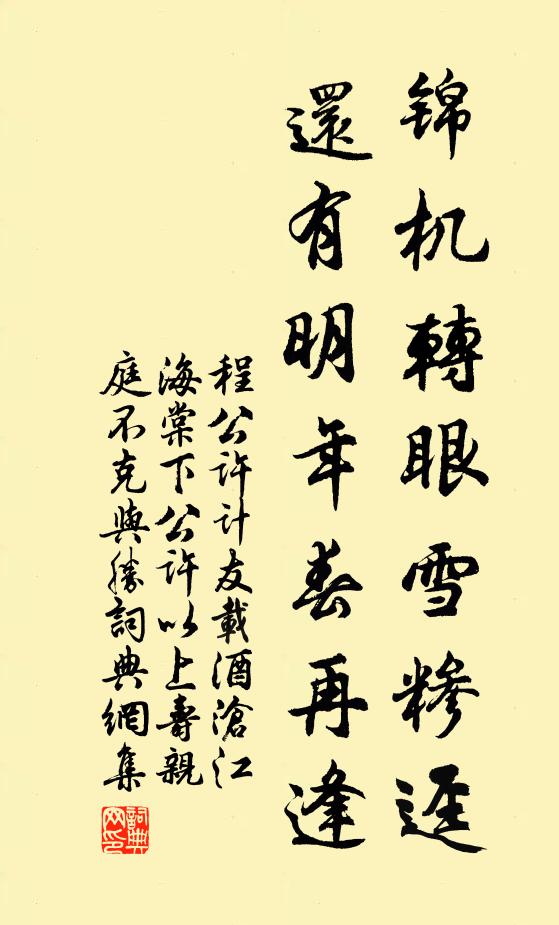 锦机轉眼雪糁逕
還有明年春再逢
程公許计友載酒滄江
海棠下公許以上壽親
庭不克與勝詞典網集
詞典
网印